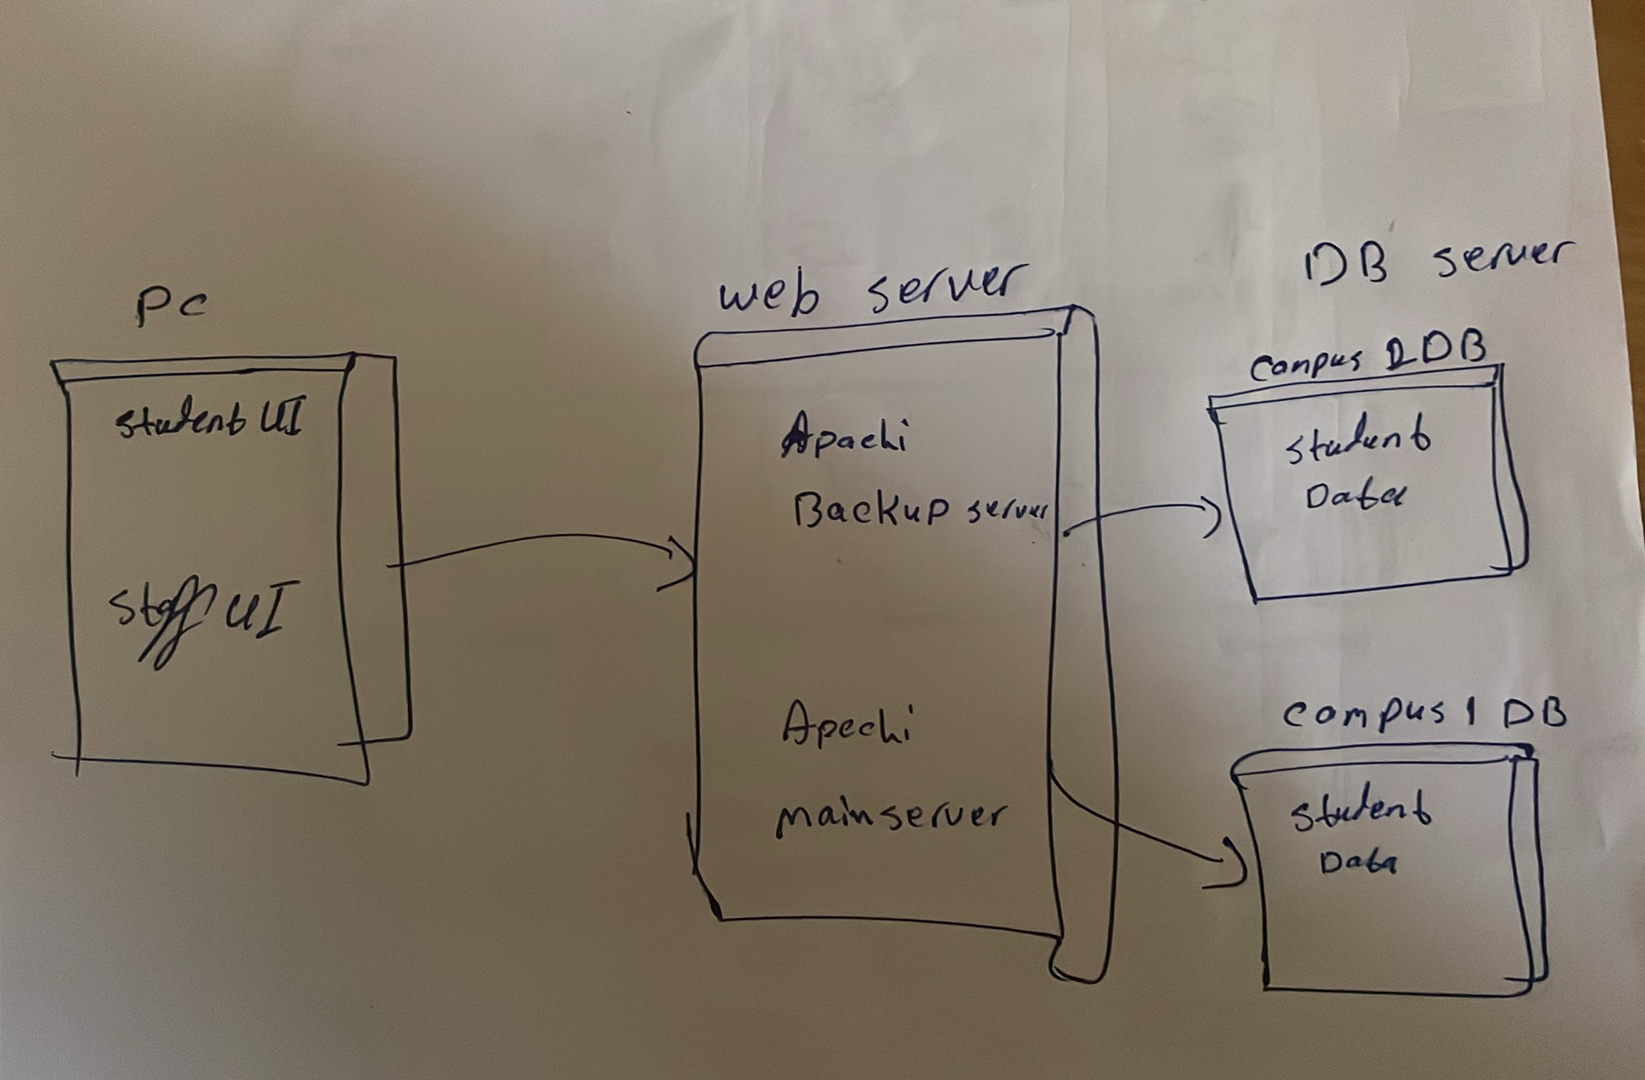 PC
student UI
staff UI
web server
Apachi
Backup server
Apechi
mainserver
DB server
campus 2 DB
student
Data
campus 1 DB
student
Data